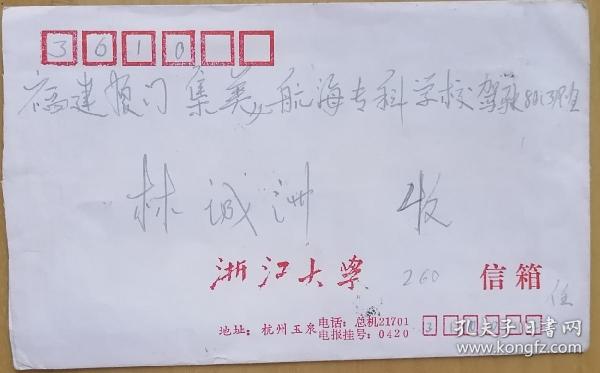 3610
福建厦门集美航海专科学校驾驶8013班
林诚洲 收
浙江大学 260 信箱
地址：杭州玉泉 电话：总机21701
电报挂号：0420
孔夫子旧书网
www.kongfz.com